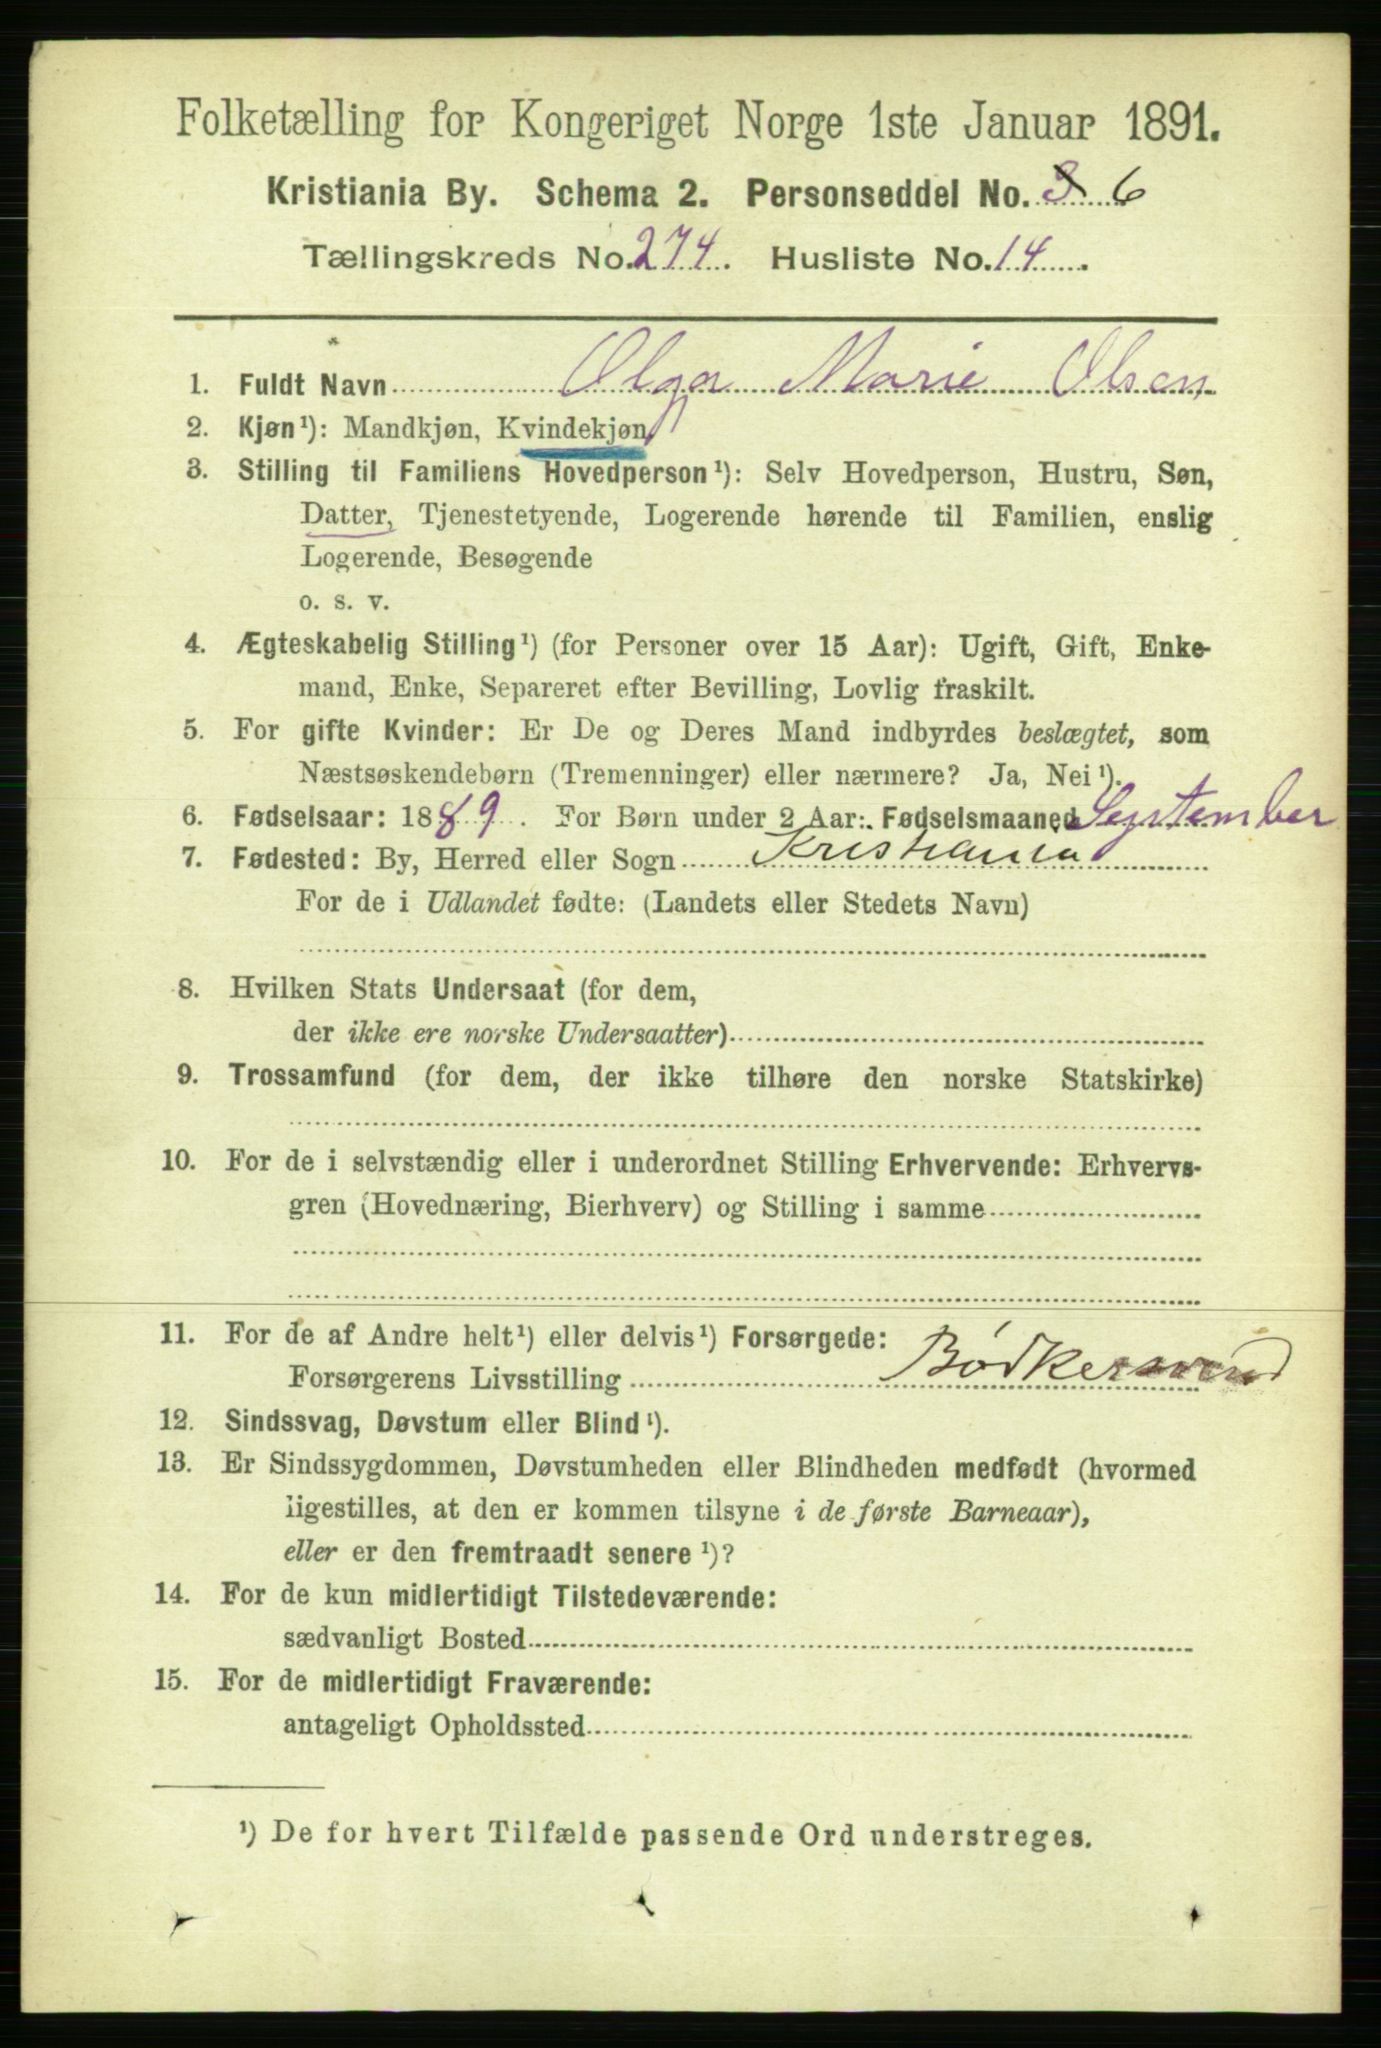 Folketælling for Kongeriget Norge 1ste Januar 1891.
Kristiania By. Schema 2. Personseddel No. 3 6
Tællingskreds No. 274. Husliste No. 14.
1. Fuldt Navn Olga Marie Olsen,
2. Kjøn¹): Mandkjøn, Kvindekjøn
3. Stilling til Familiens Hovedperson¹): Selv Hovedperson, Hustru, Søn,
Datter, Tjenestetyende, Logerende hørende til Familien, enslig
Logerende, Besøgende
o. s. v.
4. Ægteskabelig Stilling¹) (for Personer over 15 Aar): Ugift, Gift, Enke-
mand, Enke, Separeret efter Bevilling, Lovlig fraskilt.
5. For gifte Kvinder: Er De og Deres Mand indbyrdes beslægtet, som
Næstsøskendebørn (Tremenninger) eller nærmere? Ja, Nei¹).
6. Fødselsaar: 1889. For Børn under 2 Aar: Fødselsmaaned September
7. Fødested: By, Herred eller Sogn Kristiania
For de i Udlandet fødte: (Landets eller Stedets Navn)
8. Hvilken Stats Undersaat (for dem,
der ikke ere norske Undersaatter)
9. Trossamfund (for dem, der ikke tilhøre den norske Statskirke)
10. For de i selvstændig eller i underordnet Stilling Erhvervende: Erhvervs-
gren (Hovednæring, Bierhverv) og Stilling i samme
11. For de af Andre helt¹) eller delvis¹) Forsørgede:
Forsørgerens Livsstilling Bödkersvend
12. Sindssvag, Døvstum eller Blind¹).
13. Er Sindssygdommen, Døvstumheden eller Blindheden medfødt (hvormed
ligestilles, at den er kommen tilsyne i de første Barneaar),
eller er den fremtraadt senere¹)?
14. For de kun midlertidigt Tilstedeværende:
sædvanligt Bosted
15. For de midlertidigt Fraværende:
antageligt Opholdssted
¹) De for hvert Tilfælde passende Ord understreges.